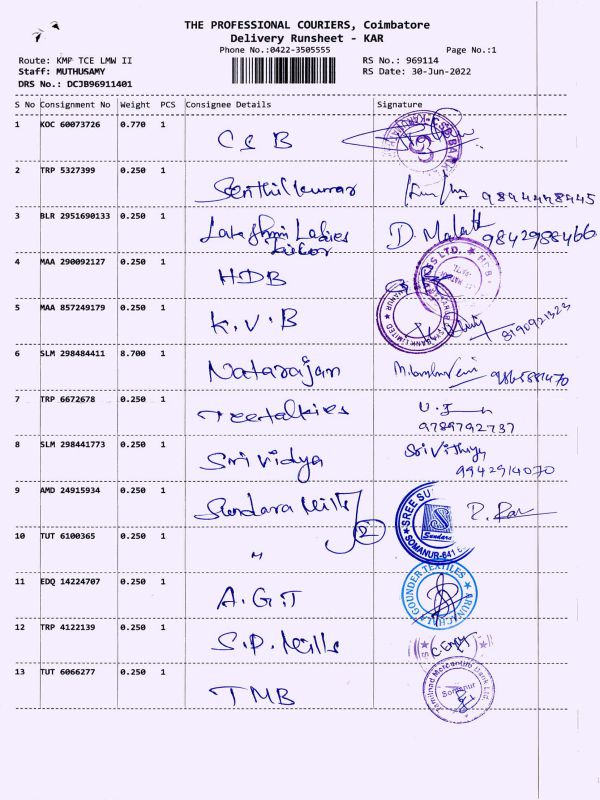 THE PROFESSIONAL COURIERS, Coimbatore
Delivery Runsheet - KAR
Phone No.:0422-3505555 Page No.:1
Route: KMP TCE LMW II RS No.: 969114
Staff: MUTHUSAMY RS Date: 30-Jun-2022
DRS No.: DCJB96911401
S No Consignment No Weight PCS Consignee Details Signature
1 KOC 60073726 0.770 1 C S B
2 TRP 5327399 0.250 1 Senthilkumar 9894448445
3 BLR 2951690133 0.250 1 Ladies D. Malath 9842988466
4 MAA 290092127 0.250 1 HDB
5 MAA 857249179 0.250 1 K.V.B 8190921323
6 SLM 298484411 8.700 1 Natarajan
7 TRP 6672678 0.250 1 9789792737
8 SLM 298441773 0.250 1 Sri Vidya Sri Vithya
9942914070
9 AMD 24915934 0.250 1 Sundara Mills SREE SU Sundara SOMANUR-641 6
2
10 TUT 6100365 0.250 1 "
11 EDQ 14224707 0.250 1 A.G.T ARUNACHALA GOUNDER TEXTILES
12 TRP 4122139 0.250 1 S.P. Mills
13 TUT 6066277 0.250 1 TMB Tamilnad Mercantile Bank Ltd. Somanur